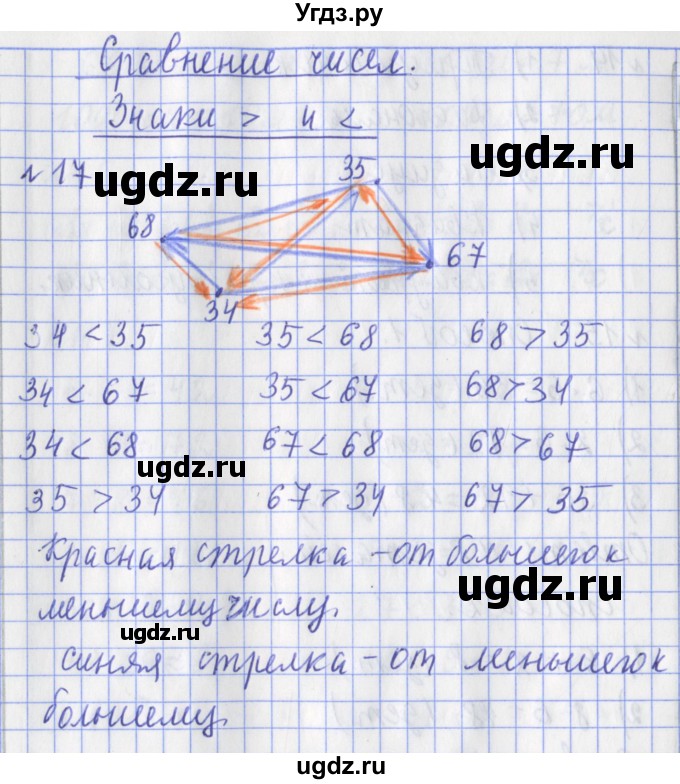 Угдз.ру
Сравнение чисел.
Знаки > и <
№17
ugdz.ru
ugdz.ru
35
68
67
34
34 < 35 35 < 68 68 > 35
34 < 67 35 < 67 68 > 34
34 < 68 67 < 68 68 > 67
ugdz.ru
35 > 34 67 > 34 67 > 35
Красная стрелка - от большего к
ugdz.ru
меньшему числу.
ugdz.ru
синяя стрелка - от меньшего к
большему.
ugdz.ru
ugdz.ru